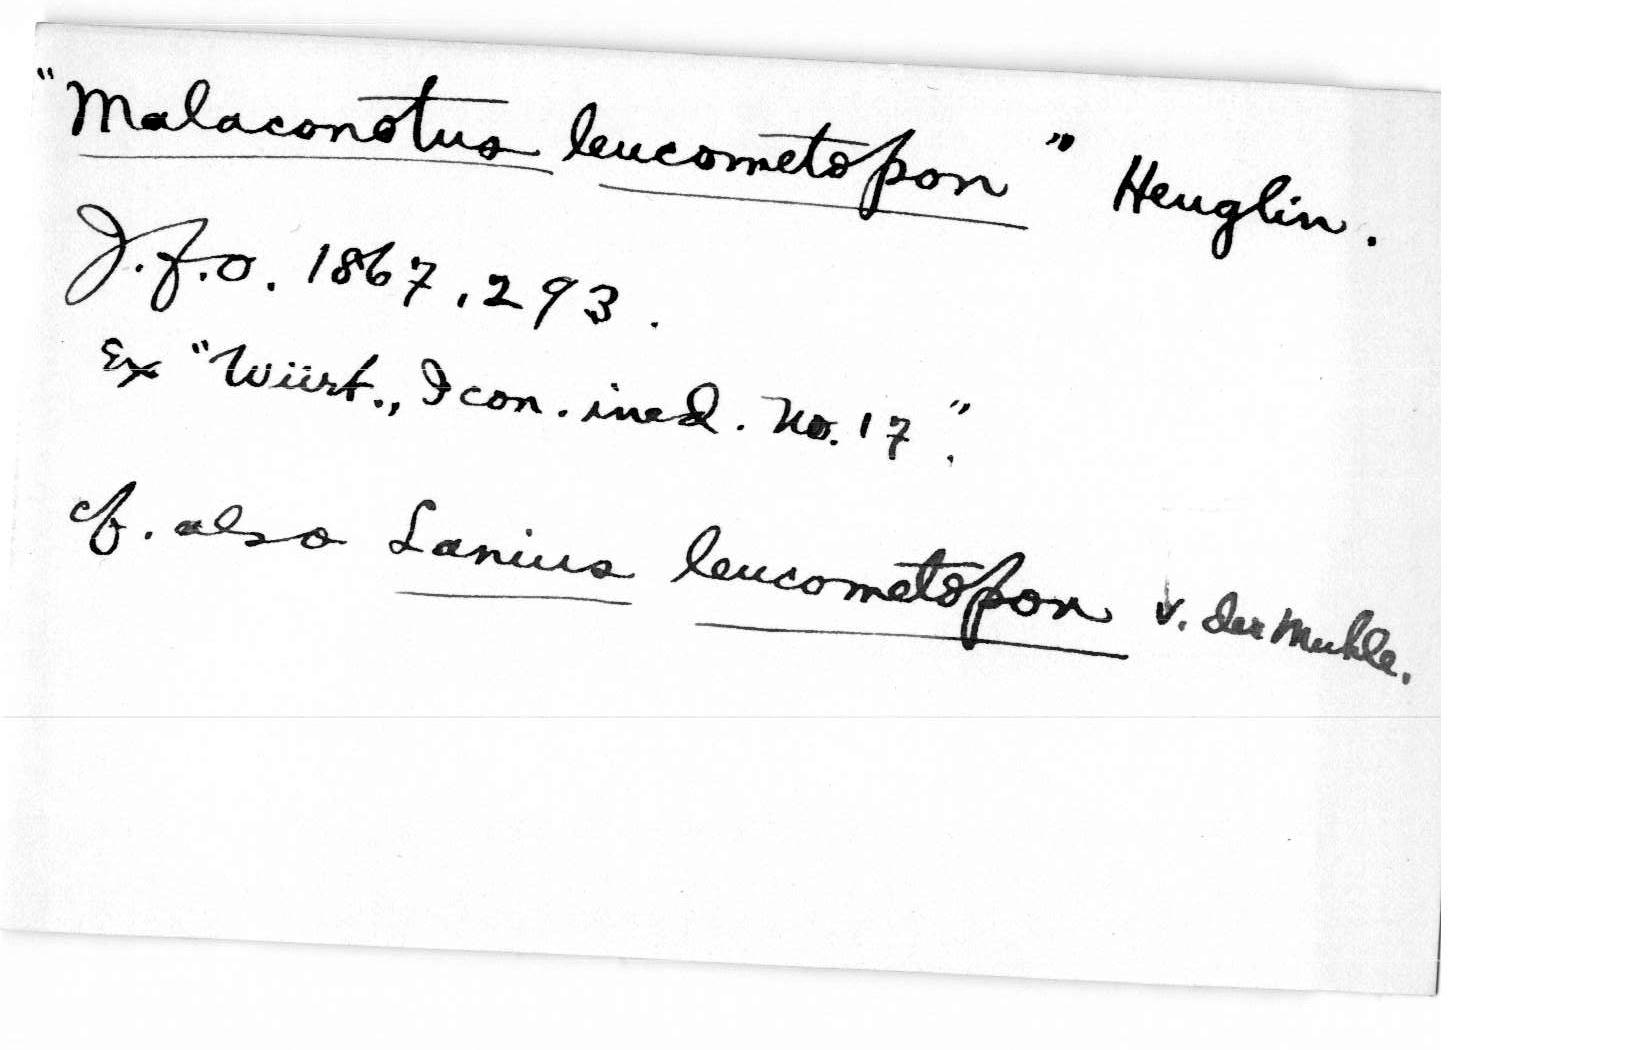 "Malaconotus leucometopon" Heuglin.
J.f.O. 1867, 293.
Ex "Würt., Icon. ined. No. 17".
cf. also Lanius leucometopon v. der Muhle.